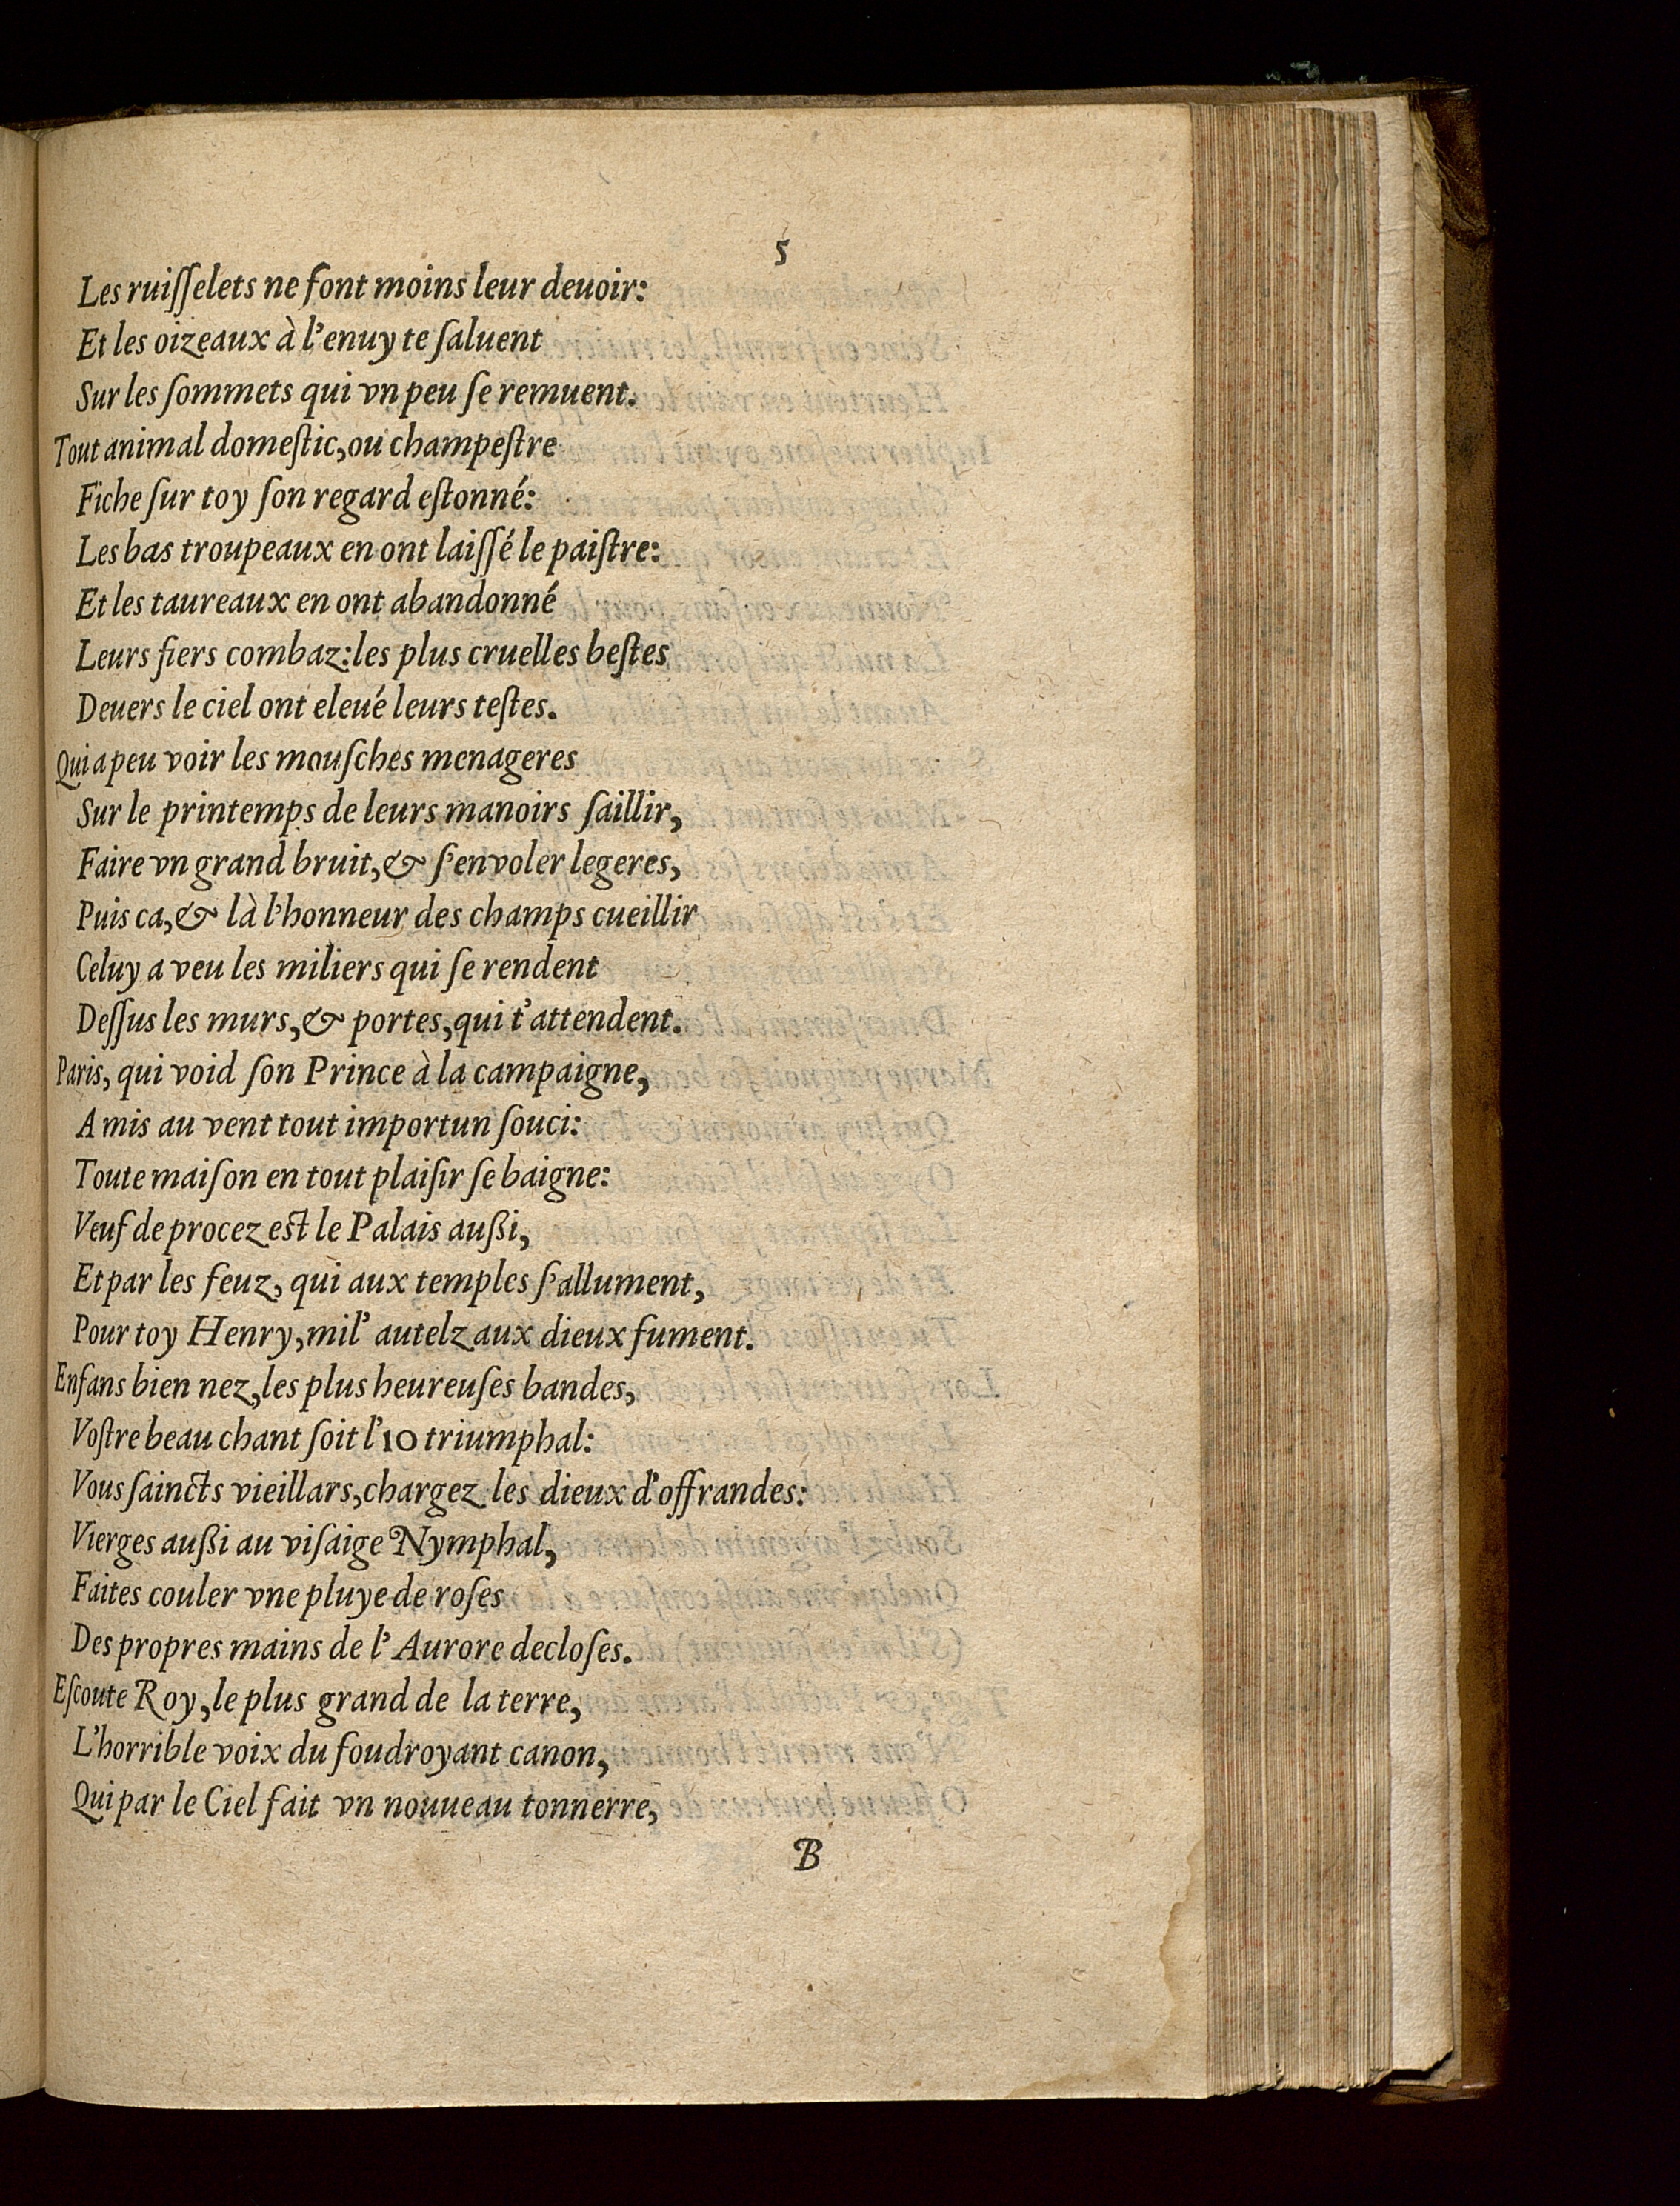 5
Les ruiſſelets ne font moins leur deuoir:
Et les oizeaux à l'enuy te ſaluent
Sur les ſommets qui vn peu ſe remuent.
Tout animal domeſtic, ou champeſtre
Fiche ſur toy ſon regard eſtonné:
Les bas troupeaux en ont laiſſé le paiſtre:
Et les taureaux en ont abandonné
Leurs fiers combaz: les plus cruelles beſtes
Deuers le ciel ont eleué leurs teſtes.
Qui a peu voir les mouſches menageres
Sur le printemps de leurs manoirs ſaillir,
Faire vn grand bruit, & ſ'enuoler legeres,
Puis ca, & là l'honneur des champs cueillir
Celuy a veu les miliers qui ſe rendent
Deſſus les murs, & portes, qui t'attendent.
Paris, qui void ſon Prince à la campaigne,
A mis au vent tout importun ſouci:
Toute maiſon en tout plaiſir ſe baigne:
Veuf de procez eſt le Palais außi,
Et par les feuz, qui aux temples ſ'allument,
Pour toy Henry, mil' autelz aux dieux fument.
Enfans bien nez, les plus heureuſes bandes,
Voſtre beau chant ſoit l'IO triumphal:
Vous ſaincts vieillars, chargez les dieux d'offrandes:
Vierges außi au viſaige Nymphal,
Faites couler vne pluye de roſes
Des propres mains de l'Aurore decloſes.
Eſcoute Roy, le plus grand de la terre,
L'horrible voix du foudroyant canon,
Qui par le Ciel fait vn nouueau tonnerre,
B